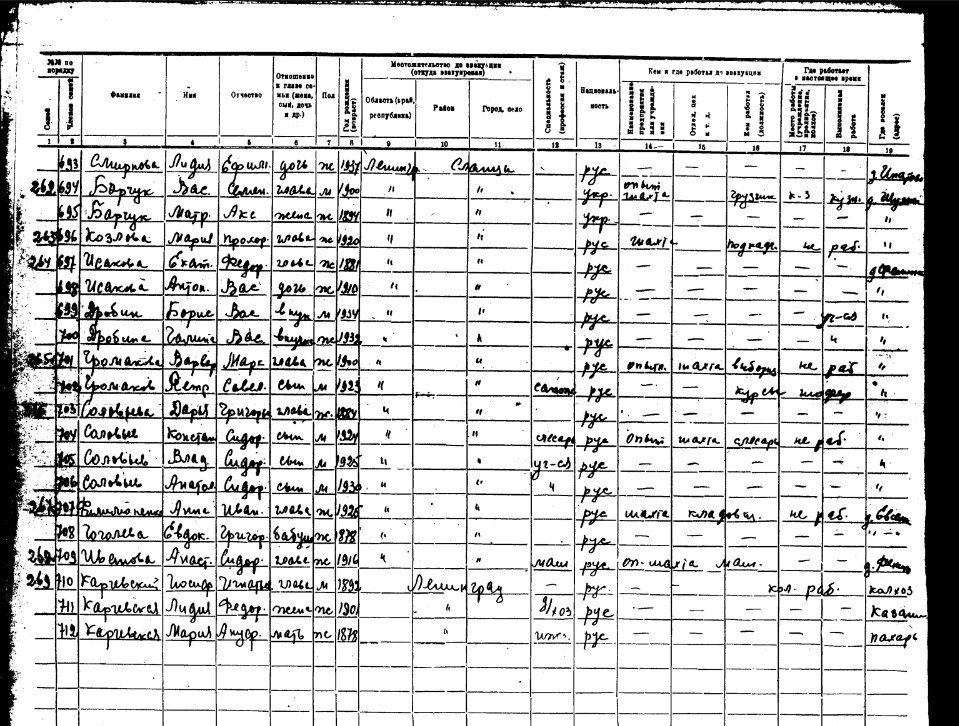 №№ по порядку Фамилия Имя Отчество Отношение к главе семьи (жена, сын, дочь и др.) Пол Год рождения (возраст) Местожительство до эвакуации (откуда эвакуирован) Специальность (профессия и стаж) Национальность Кем и где работал до эвакуации Где работает в настоящее время Где поселен (адрес)
Семей Членов семей Область (край, республика) Район Город, село Наименование предприятия или учреждения Отдел, цех и т. д. Кем работал (должность) Место работы (учреждение, предприятие, колхоз) Выполняемая работа
1 2 3 4 5 6 7 8 9 10 11 12 13 14 15 16 17 18 19
693 Смирнова Лидия Ефим. дочь ж 1937 Ленингр Сланцы — рус — — — — —
262 694 Барчук Вас. Семен. глава м 1900 " " укр. опыт шахта — грузчик к-з
695 Барчук Матр. Акс жена ж 1894 " " — укр. — — — — — "
263 696 Козлова Мария Прохор. глава ж 1920 " " — рус шахта — не раб. "
264 697 Исакова Екат. Федор. глава ж 1881 " " — рус — — — — —
698 Исакова Антон. Вас дочь ж 1910 " " — рус — — — — — "
699 Дробин Борис Вас внук м 1934 " " — рус — — — — уч-ся "
700 Дробина Галина Вас. внучка ж 1932 " " — рус — — — — " "
265 701 Громакова Варвар Марк глава ж 1900 " " — рус опытн. шахта не раб "
702 Громаков Петр Савел. сын м 1923 " " рус — — курсы шофер "
703 Соловьева Дарья Григорь глава ж 1884 " " — рус — — — — — "
704 Соловьев Констан Сидор. сын м 1924 " " слесарь рус опыт шахта слесарь не раб. "
705 Соловьев Влад Сидор. сын м 1925 " " уч-ся рус — — — — — "
706 Соловьев Анатол Сидор. сын м 1930 " " " рус — — — — — "
267 707 Анна Иван. глава ж 1925 " " — рус шахта кладовщ. не раб.
708 Гоголева Евдок. Григор. бабуш ж 1878 " " — рус — — — — — "
268 709 Анаст. Сидор. глава ж 1916 " " маш рус оп. шахта маш. — —
269 710 Карчевский Иосиф Игнатье глава м 1892 Ленинград — ру — — — кол. раб. колхоз
711 Карчевская Лидия Федор. жена ж 1901 " д/хоз рус — — — — —
712 Карчевская Мария Ануфр. мать ж 1878 " ижд. рус — — — — — пахарь